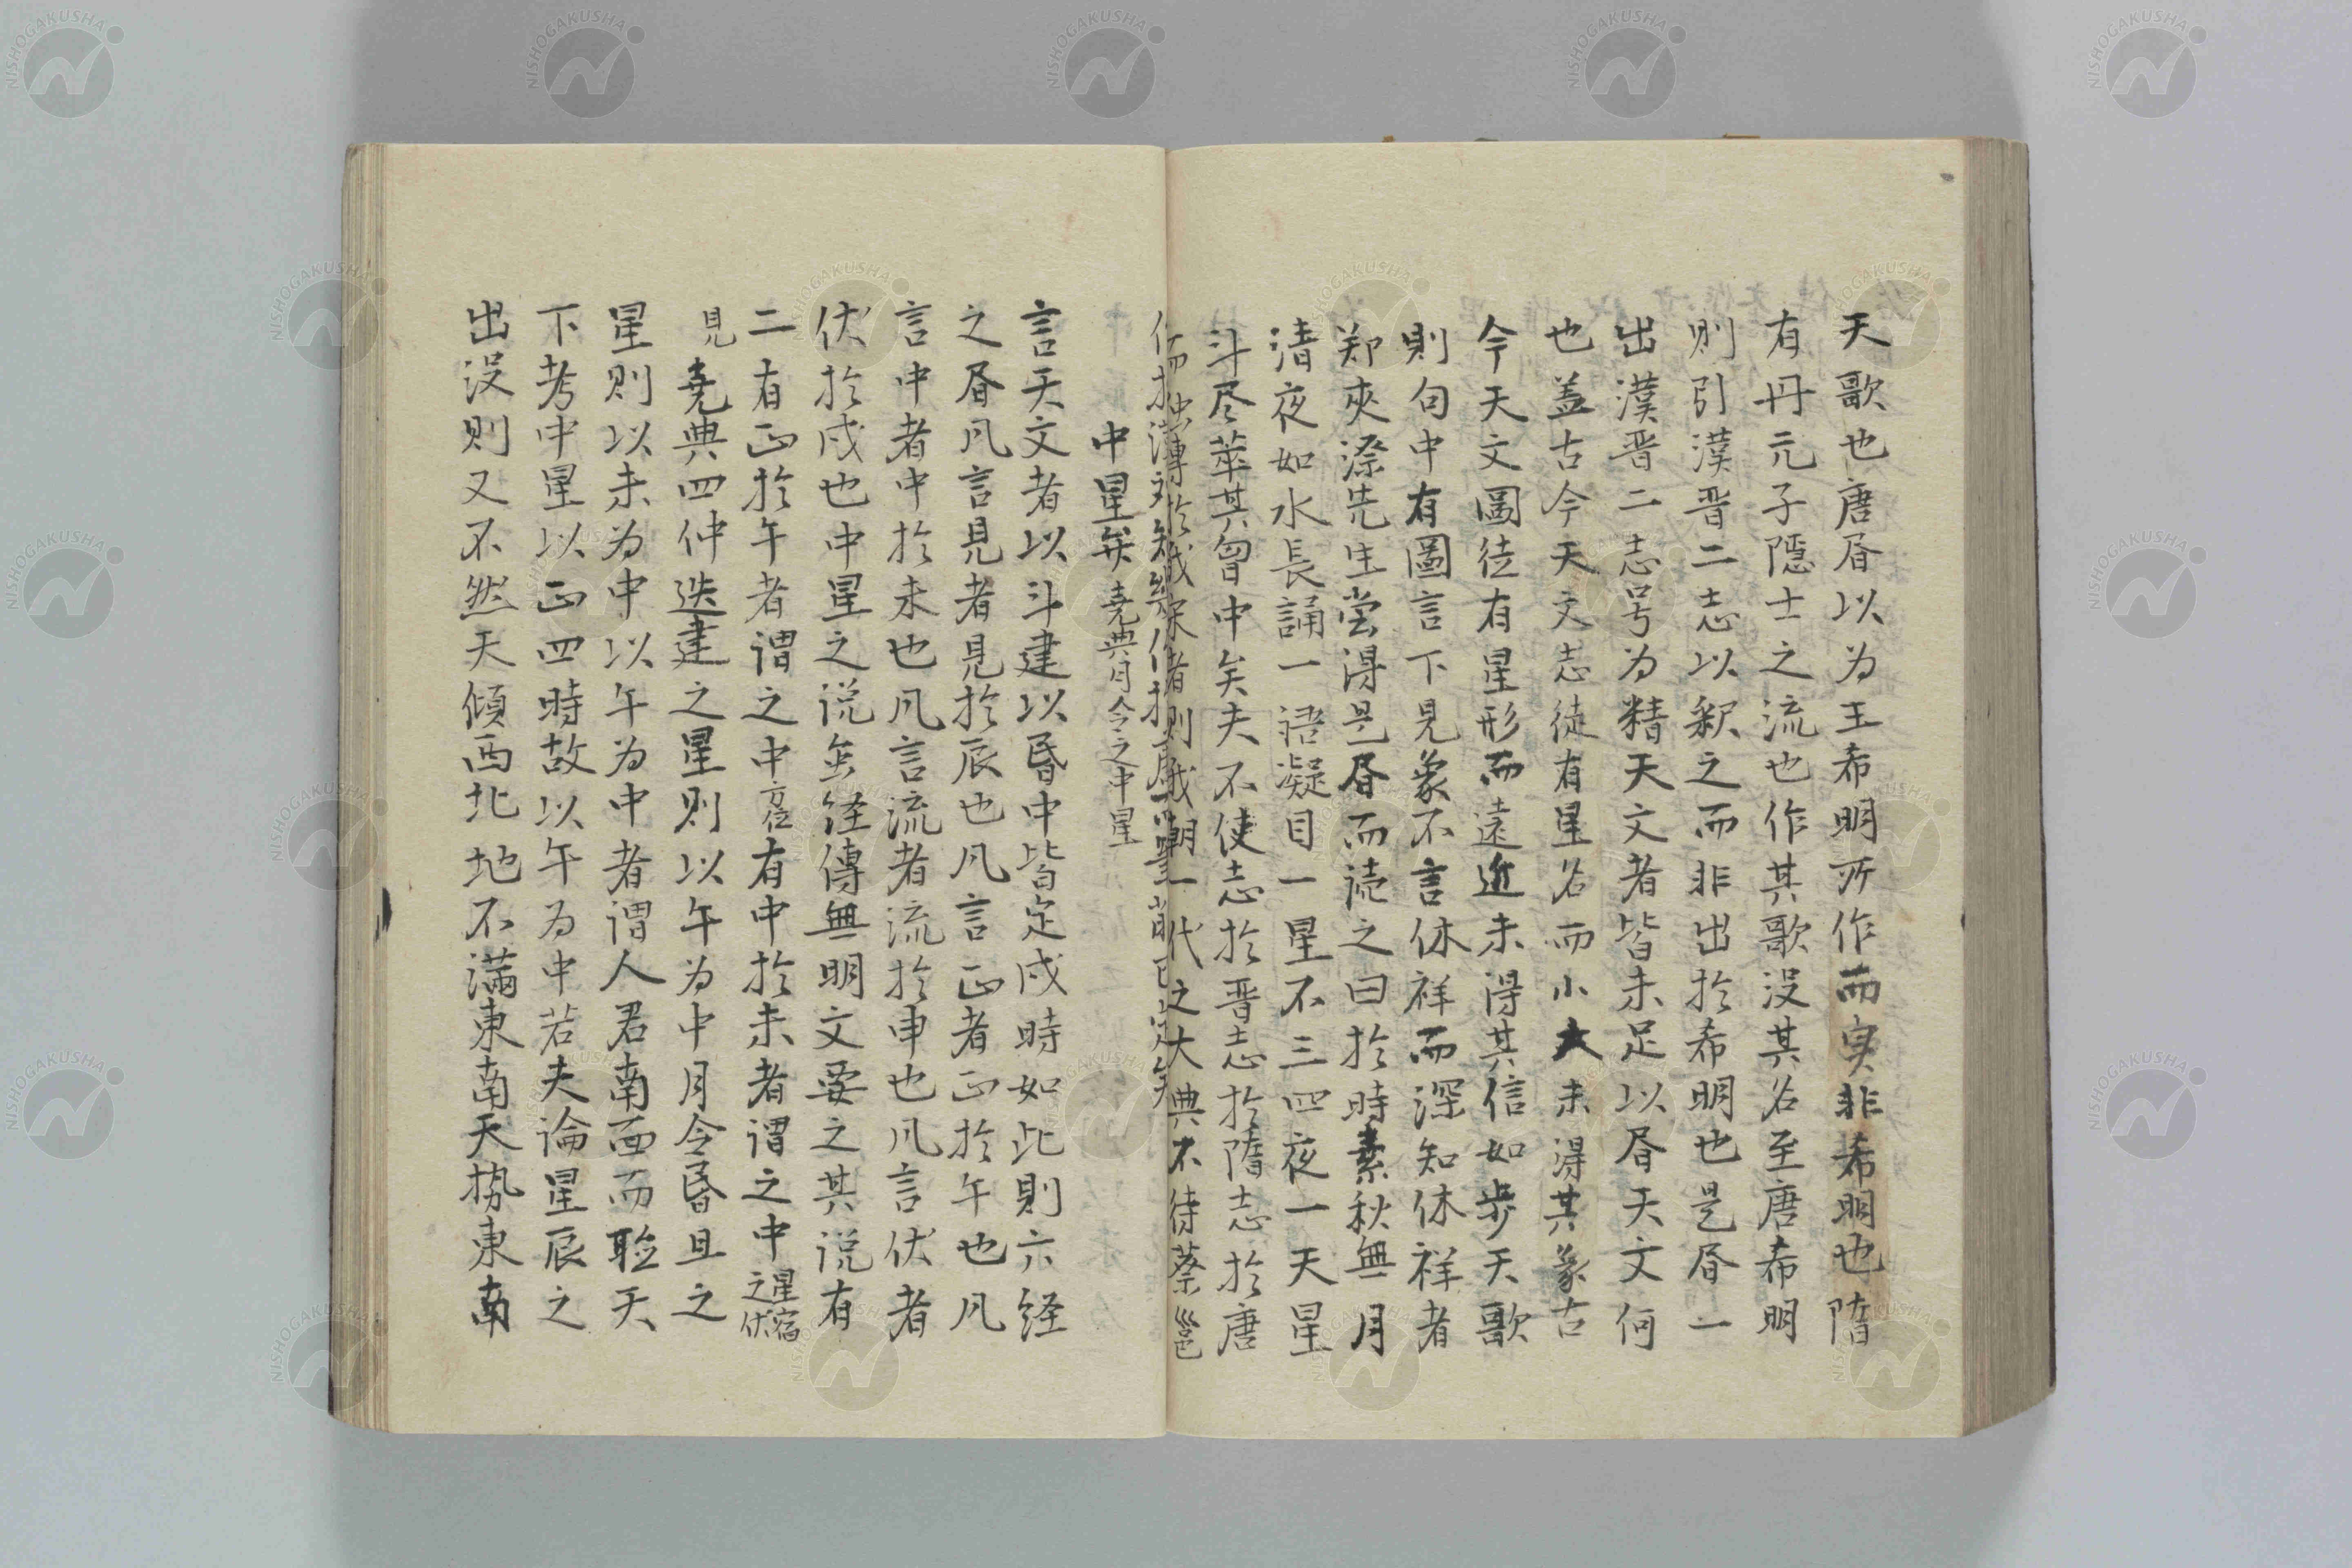 天歌也唐昏以为王希明所作而実非希明也隋
有丹元子隱士之流也作其歌没其名至唐希明
則引漢晋二志以釈之而非出於希明也是昏一
出漢晋二志号为精天文者皆未足以昏天文何
也盖古今天文志徒有星名而小大未淂其象古
今天文圖徒有星形而遠近未淂其信如歩天歌
則句中有圖言下見象不言休祥而深知休祥者
郑夾漈先生尝淂是昏而読之曰於時素秋無月
清夜如水長誦一語凝目一星不三四夜一天星
斗尽萃其曽中矣夫不使志於晋志於隋志於唐
一代之大典不待蔡邕
中星矣 堯典月令之中星
言天文者以斗建以昏中皆定戌時如此則六経
之昏凡言見者見於辰也凡言正者正於午也凡
言中者中於未也凡言流者流於申也凡言伏者
伏於戌也中星之説经傳無明文要之其説有
二有正於午者謂之中方位有中於未者謂之中星宿之伏
見堯典四仲迭建之星則以午为中月令昏旦之
星則以未为中以午为中者謂人君南面而聴天
下考中星以正四時故以午为中若夫論星辰之
出没則又不然天傾西北地不滿東南天㔟東南